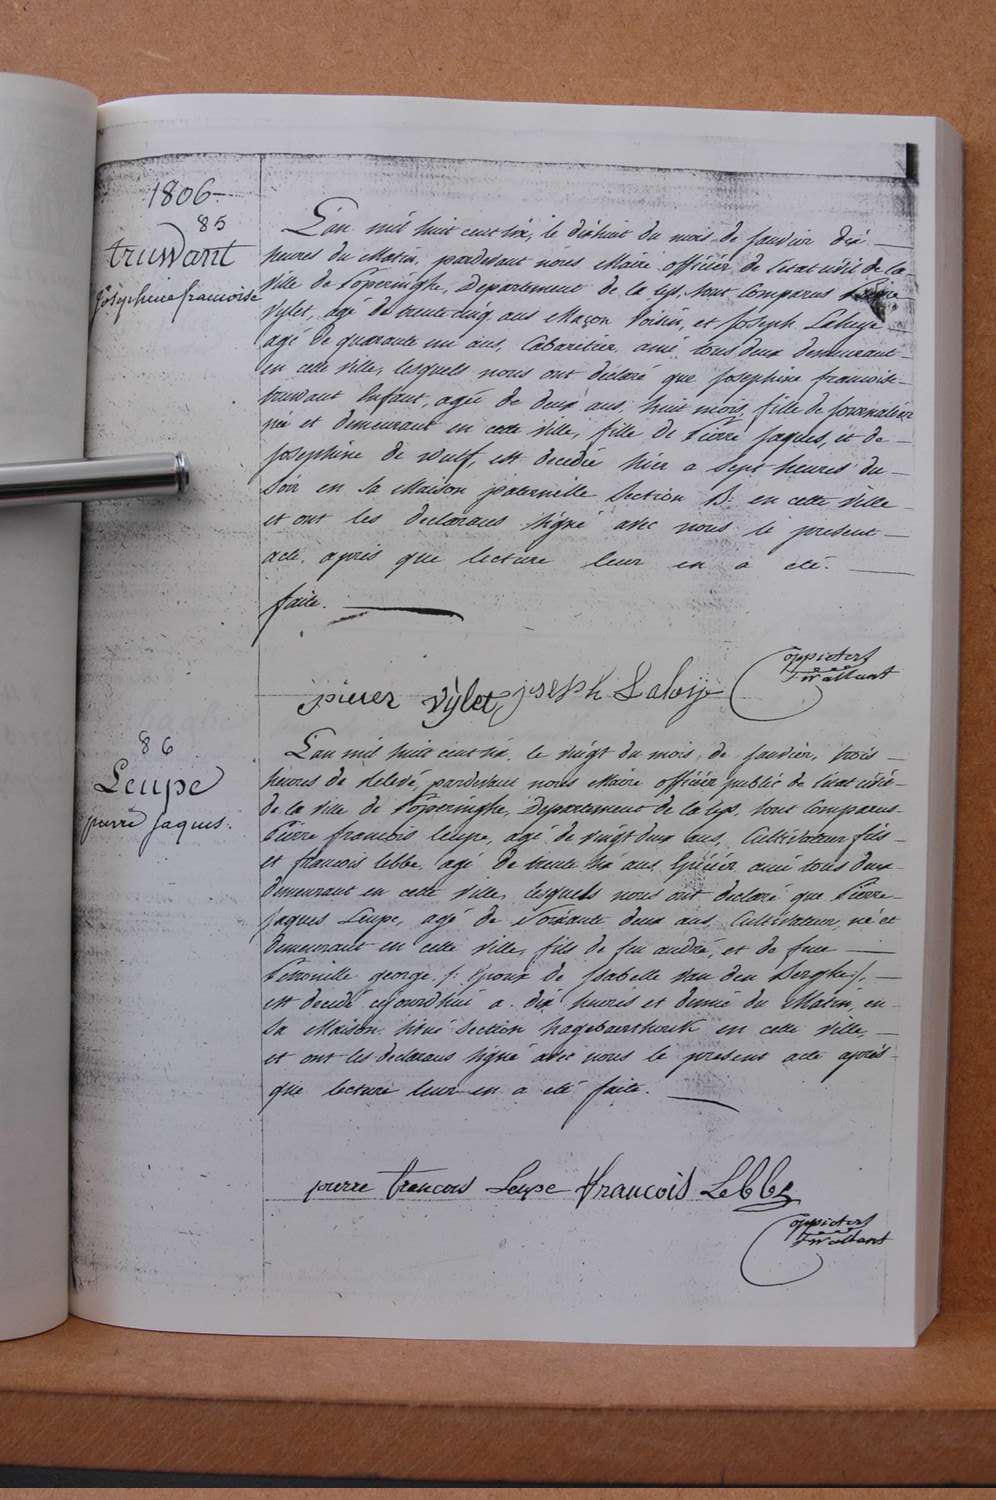 1806
85
truwant
Josephine francoise
L'an mil huit cent six, le dixhuit du mois de Janvier dix
heures du Matin, pardevant nous Maire officier de l'etat civil de la
ville de Poperinghe, Departement de la Lys, sont comparus Pierre
Vylet, agé de trente cinq ans Maçon Voisin, et Joseph Laheye
agé de quarante un ans, Cabaritier, ami tous deux demeurant
en cette ville, lesquels nous ont declaré que Josephine francoise
truwant Enfant, agée de deux ans, huit mois, fille de Journalier
née et demeurant en cette ville, fille de Pierre Jaques, et de
Josephine de Wulf, est decedée hier a sept heures du
Soir en sa Maison paternelle Section B: en cette ville
et ont les declarans signé avec nous le present
acte, apres que lecture leur en a eté.
faite.
pieter vÿlet joseph
86
Leupe
pierre Jaques.
L'an mil huit cent six, le vingt du mois, de Janvier, trois
heures de relevé, pardevant nous Maire officier public de l'etat civil
de la ville de Poperinghe, Departement de la Lys, sont comparus
Pierre francois Leupe, agé de vingt deux ans, Cultivateur fils
et francois lebbe, agé de trente six ans Epicier, ami tous deux
demeurant en cette ville, lesquels nous ont declaré que Pierre
Jaques Leupe, agé de Soixante deux ans, Cultivateur, né et
demeurant en cette ville, fils de feu andré, et de feue
Petronille george, /: Epoux de Isabelle Van den Berghe :/,
est decedé cejourdhui a dix heures et demie du Matin, en
sa Maison, situé Section en cette ville,
et ont les declarans signé avec nous le present acte après
que lecture leur en a eté faite.
pierre francois Leupe francois Lebbe